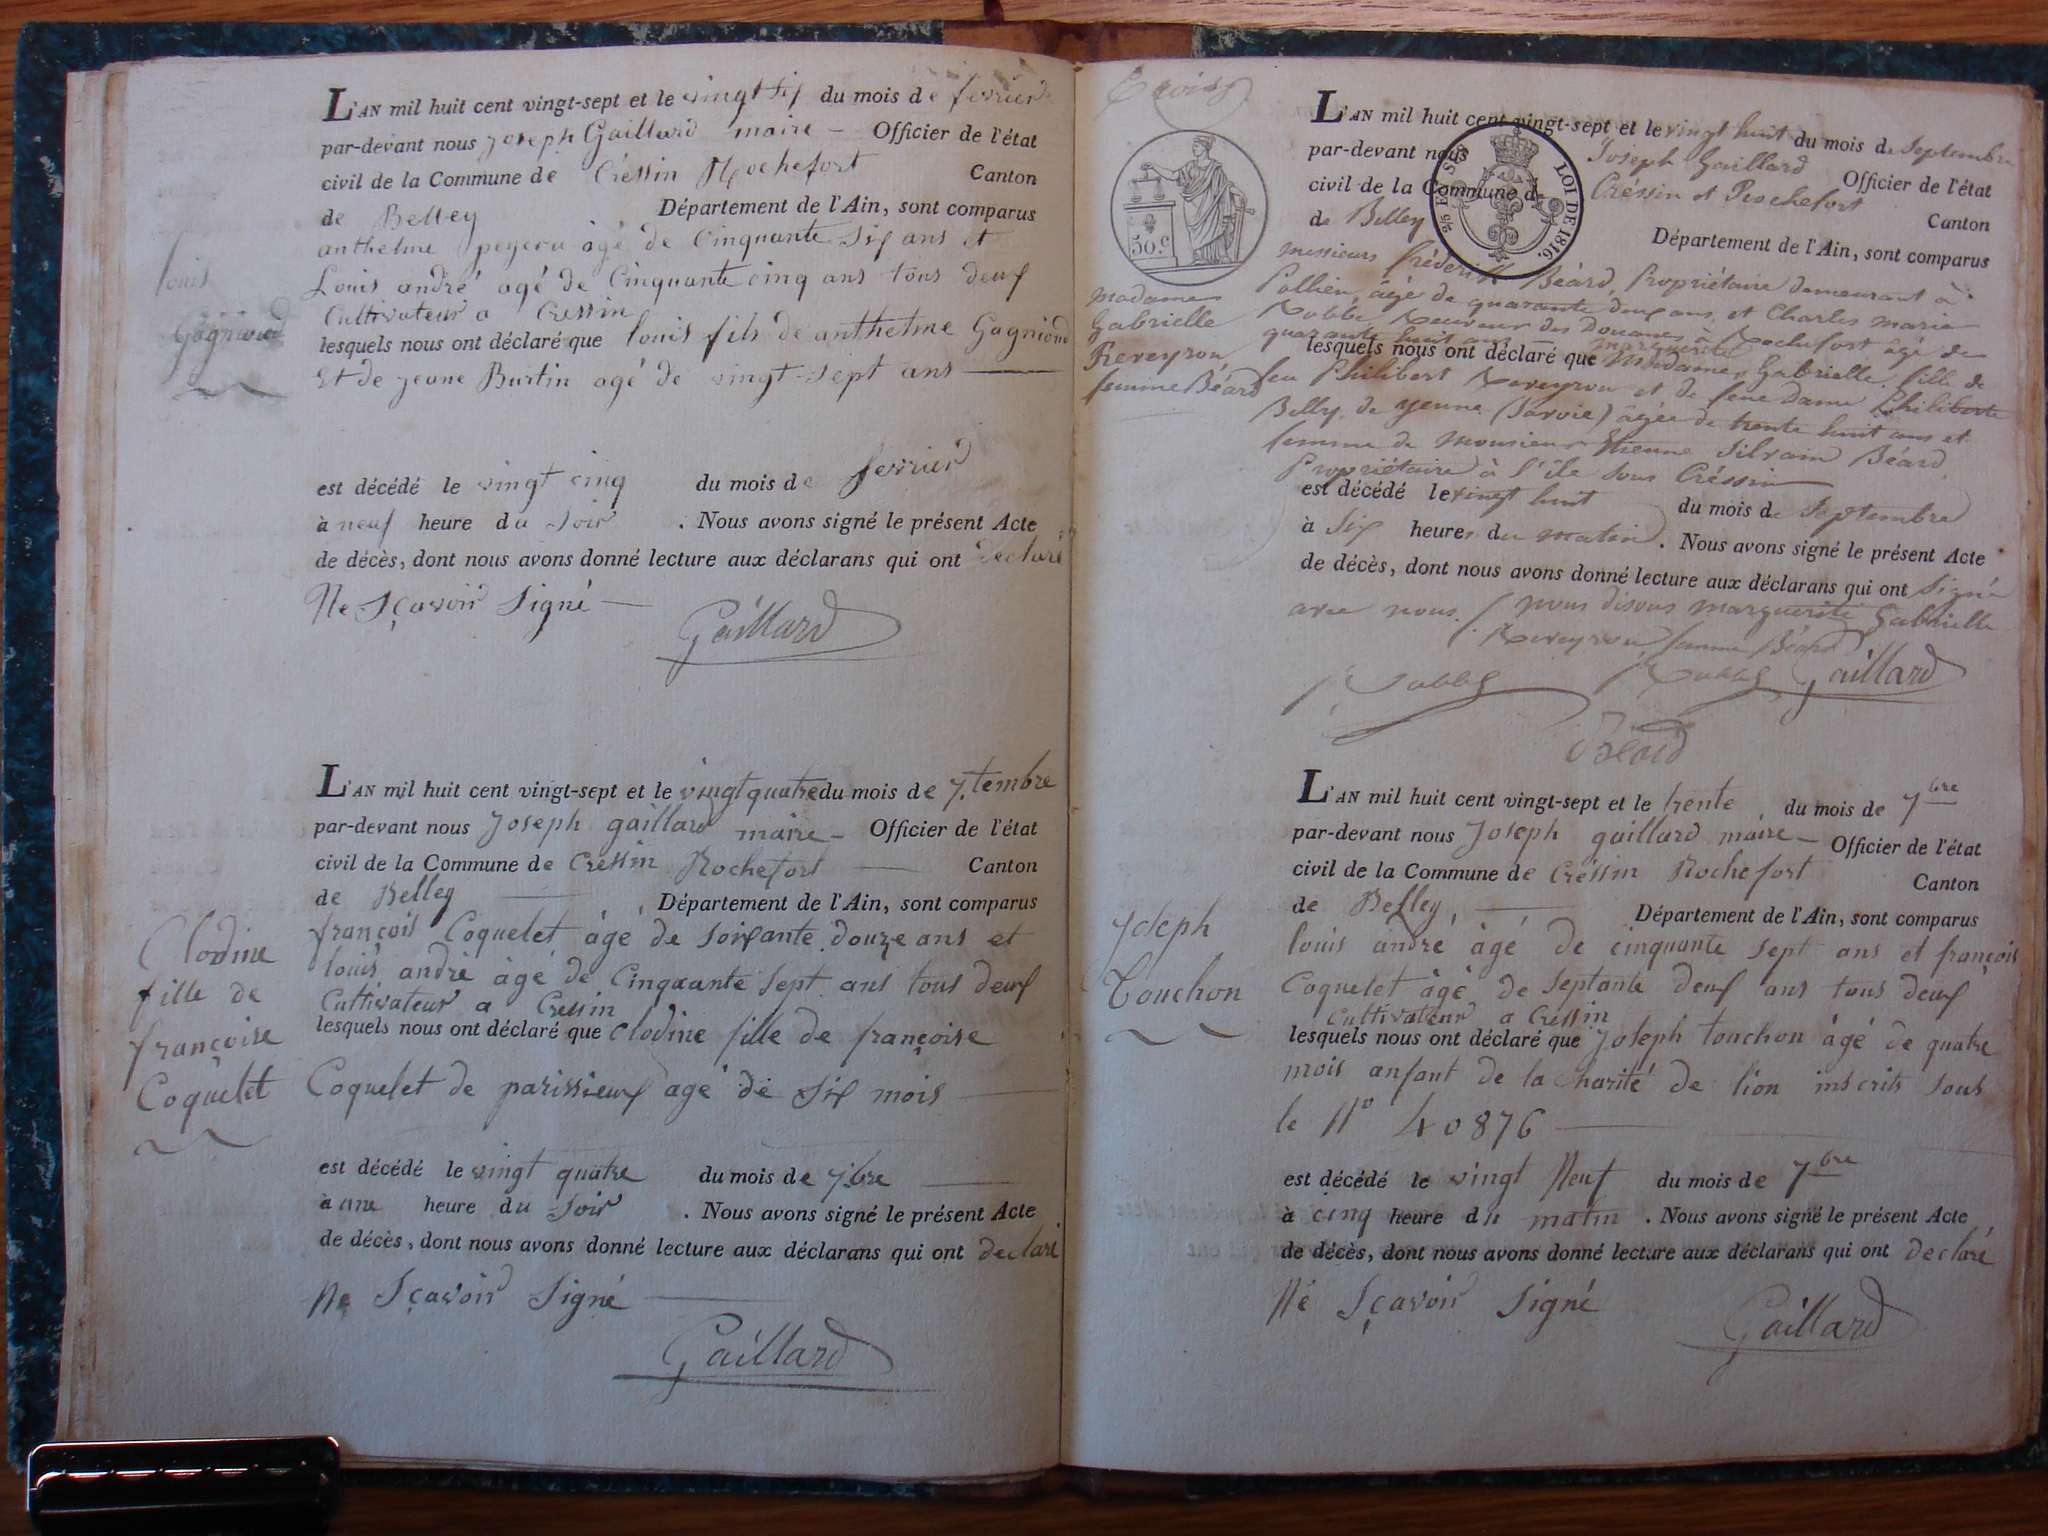 L'AN mil huit cent vingt-sept et le vingt six du mois de fevrier
par-devant nous joseph Gaillard maire — Officier de l'état
civil de la Commune de Créssin Rochefort Canton
de Belley Département de l'Ain, sont comparus
anthelme âgé de Cinquante Six ans et
Louis andré agé de Cinquante cinq ans tous deux
Cultivateur a Cressin
lesquels nous ont déclaré que louis fils de anthelme Gagniond
Et de jeane Burtin agé de vingt-sept ans —
louis
Gagniond
est décédé le vingt cinq du mois de fevrier
à neuf heure du soir . Nous avons signé le présent Acte
de décès, dont nous avons donné lecture aux déclarans qui ont declaré
Ne Sçavoir Signé —
Gaillard
L'AN mil huit cent vingt-sept et le vingt quatre du mois de 7.tembre
par-devant nous Joseph gaillard maire — Officier de l'état
civil de la Commune de Cressin Rochefort — Canton
de Belley — Département de l'Ain, sont comparus
françois Coquelet âgé de soixante douze ans et
louis andré âgé de Cinquante sept ans tous deux
Cultivateur a Cressin
lesquels nous ont déclaré que Clodine fille de françoise
Coquelet de parissieux agé de six mois —
Clodine
fille de
françoise
Coquelet
est décédé le vingt quatre du mois de 7bre —
à une heure du Soir . Nous avons signé le présent Acte
de décès, dont nous avons donné lecture aux déclarans qui ont declaré
Ne Sçavoir Signé —
Gaillard
trois
50.c
25 E LOI DE 1816.
L'AN mil huit cent vingt-sept et le vingt huit du mois de Septembre
par-devant nous Joseph Gaillard Officier de l'état
civil de la Commune de Créssin et Rochefort Canton
de Belley Département de l'Ain, sont comparus
messieurs fréderik Béard, Propriétaire demeurant à
Pollieu, âgé de quarante deux ans, et Charles marie
Rubbe Receveur des Douanes à Rochefort âgé de
quarante huit ans
lesquels nous ont déclaré que Madame marguerite Gabrielle, fille de
feu Philibert Reveyron et de feue Dame Philiberte
Belly de yenne (Savoie) âgée de trente huit ans et
femme de Monsieur Etienne Silvain Béard
Propriétaire à l'île sous Créssin —
madame
Gabrielle
Reveyron
femme Béard
est décédé le vingt huit du mois de Septembre
à Six heures du matin . Nous avons signé le présent Acte
de décès, dont nous avons donné lecture aux déclarans qui ont Signé
avec nous. / nous disons marguerite Gabrielle
Reveyron, femme Béard
Gaillard
Béard
L'AN mil huit cent vingt-sept et le trente du mois de 7bre
par-devant nous Joseph gaillard maire — Officier de l'état
civil de la Commune de Créssin Rochefort Canton
de Belley, — Département de l'Ain, sont comparus
louis andré âgé de cinquante sept ans et françois
Coquelet âgé de septante deux ans tous deux
Cultivateur a Cressin
lesquels nous ont déclaré que Joseph touchon âgé de quatre
mois anfant de la charité de lion inscrits sous
le No 40876 —
Joseph
Touchon
est décédé le vingt Neuf du mois de 7bre
à cinq heure du matin . Nous avons signé le présent Acte
de décès, dont nous avons donné lecture aux déclarans qui ont declaré
Ne Sçavoir Signé
Gaillard